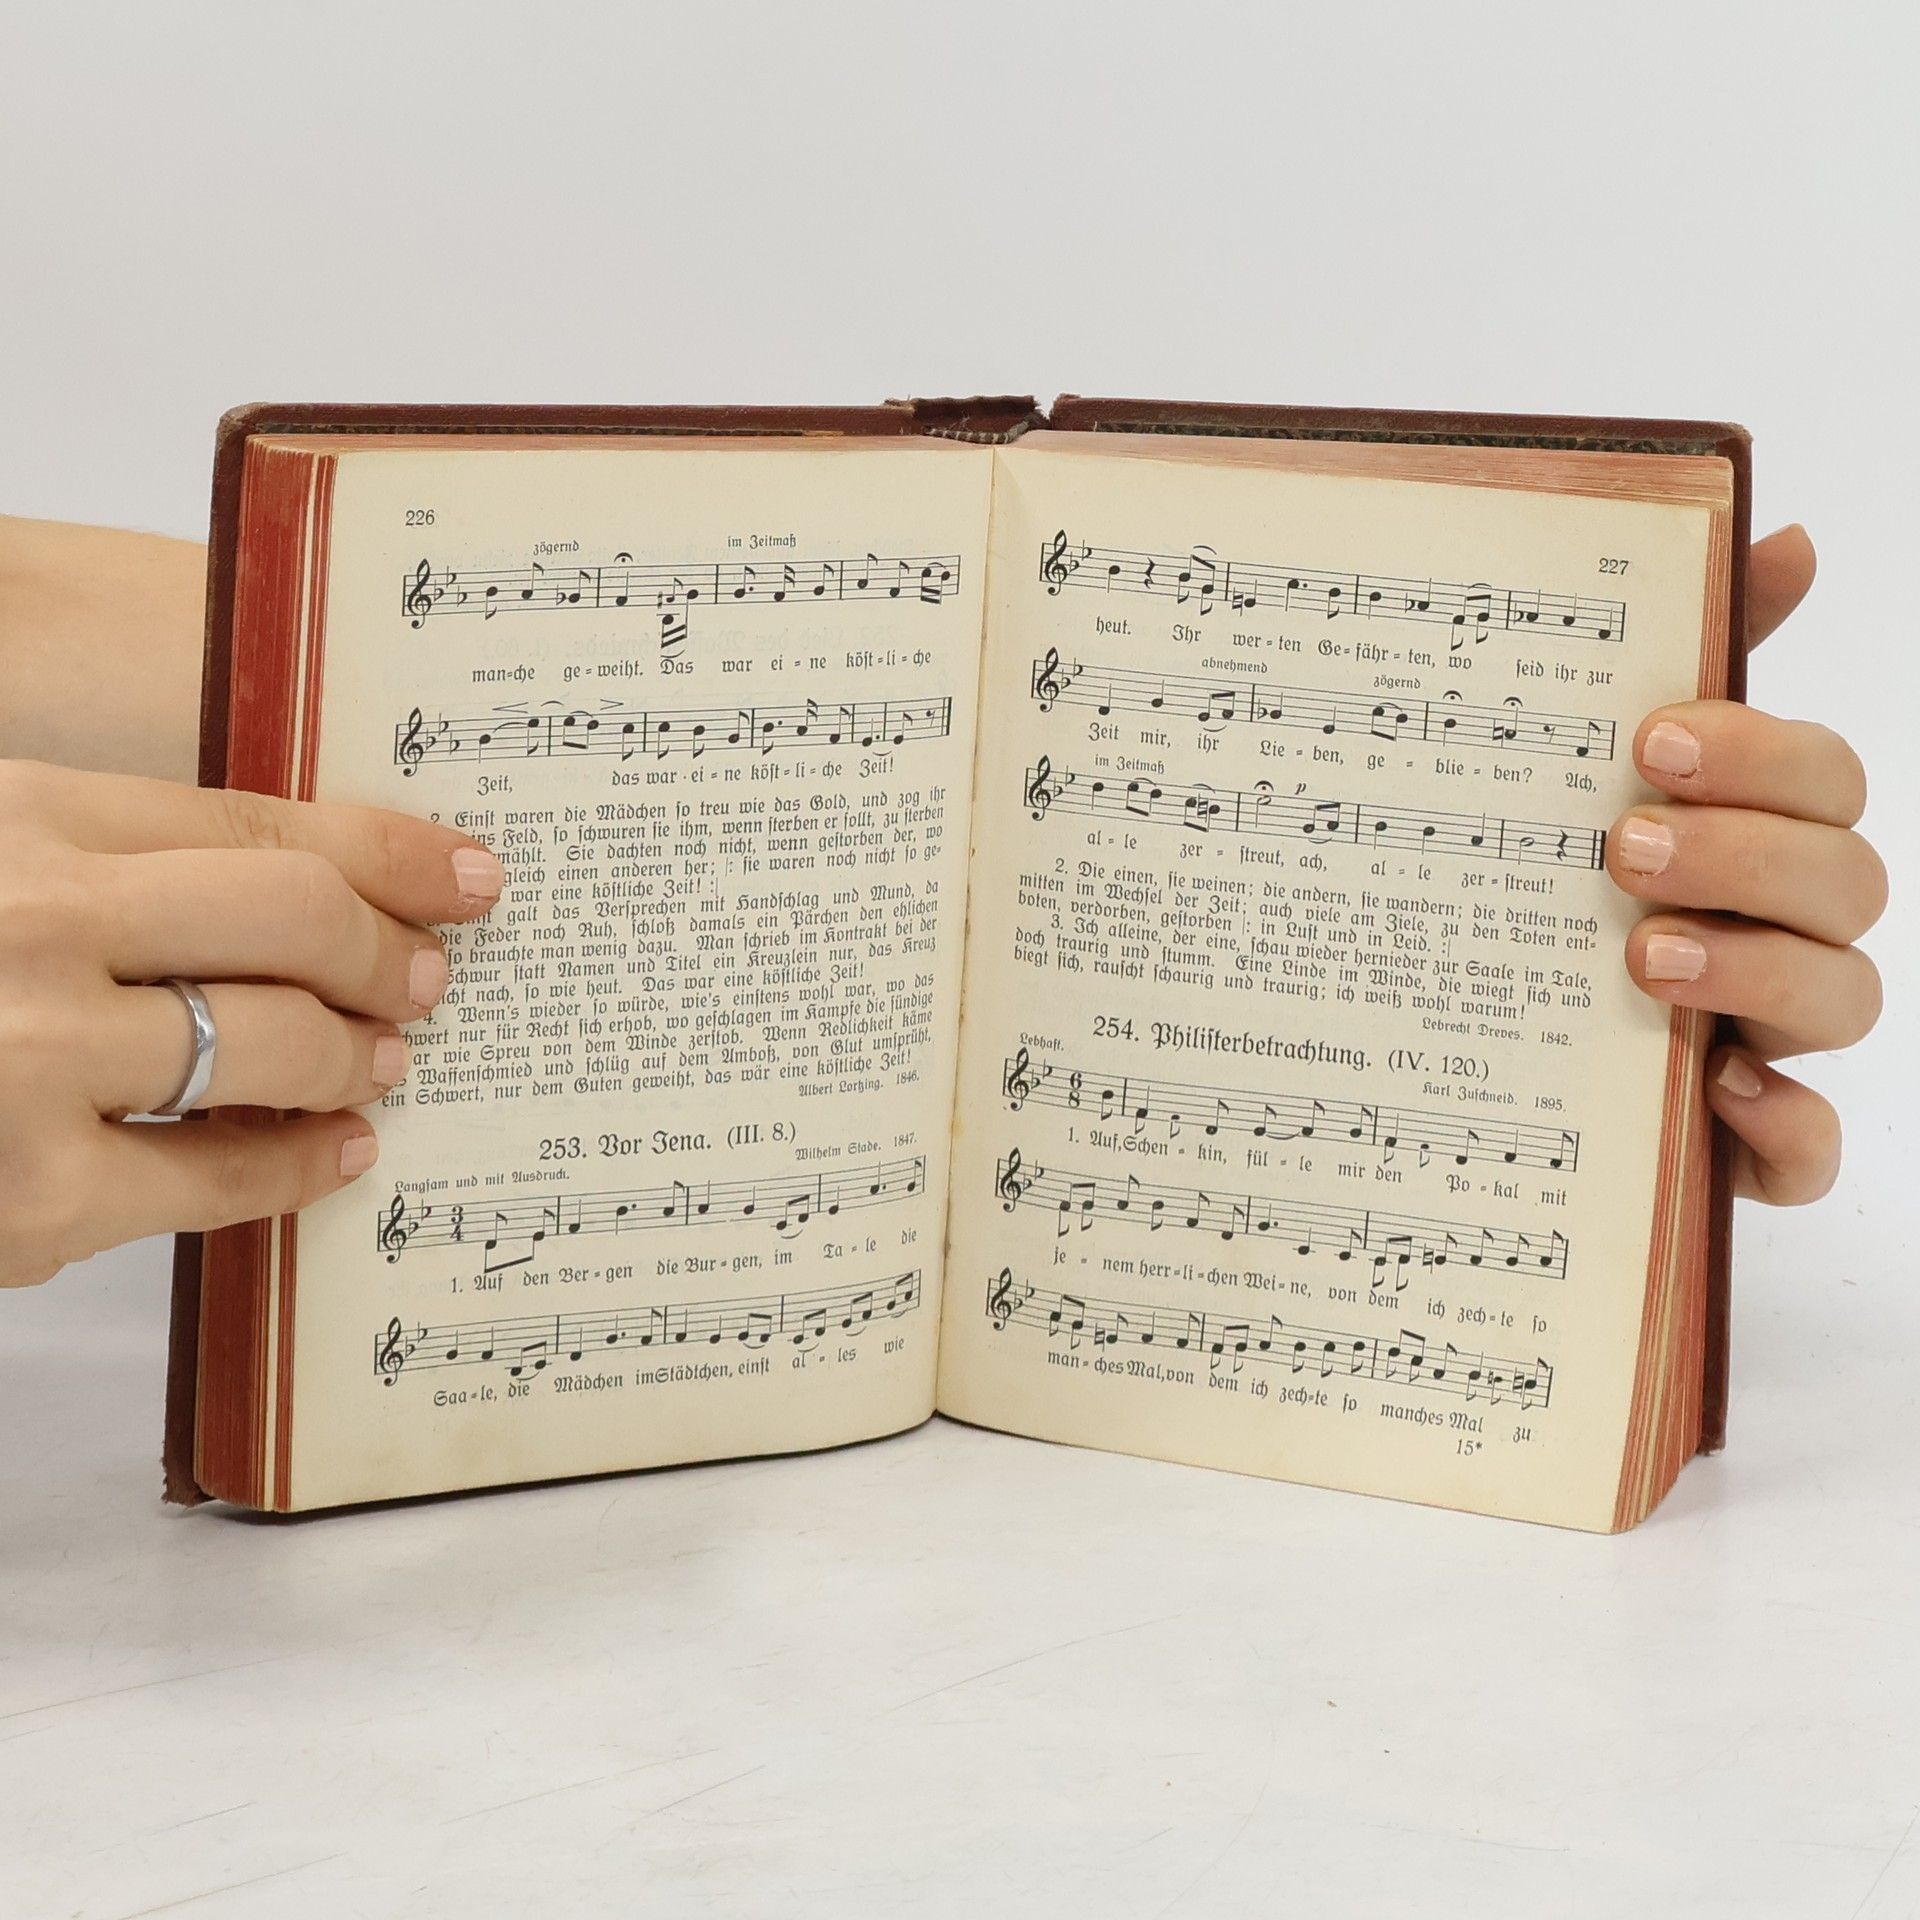 226
zögernd im Zeitmaß
man=che ge=weiht. Das war ei=ne köst=li=che
Zeit, das war ei=ne köst=li=che Zeit!
2. Einſt waren die Mädchen ſo treu wie das Gold, und zog ihr
ins Feld, ſo ſchwuren ſie ihm, wenn ſterben er ſollt, zu ſterben
Sie dachten noch nicht, wenn geſtorben der, wo
gleich einen anderen her; |: ſie waren noch nicht ſo ge=
war eine köſtliche Zeit! :|
galt das Verſprechen mit Handſchlag und Mund, da
die Feder noch Ruh, ſchloß damals ein Pärchen den ehlichen
ſo brauchte man wenig dazu. Man ſchrieb im Kontrakt bei der
Schwur ſtatt Namen und Titel ein Kreuzlein nur, das Kreuz
nach, ſo wie heut. Das war eine köſtliche Zeit!
4. Wenn's wieder ſo würde, wie's einſtens wohl war, wo das
nur für Recht ſich erhob, wo geſchlagen im Kampfe die ſündige
wie Spreu von dem Winde zerſtob. Wenn Redlichkeit käme
Waffenſchmied und ſchlüg auf dem Amboß, von Glut umſprüht,
ein Schwert, nur dem Guten geweiht, das wär eine köſtliche Zeit!
Albert Lortzing. 1846.
253. Vor Jena. (III. 8.)
Wilhelm Stade. 1847.
Langſam und mit Ausdruck.
1. Auf den Ber=gen die Bur=gen, im Ta=le die
Saa=le, die Mädchen im Städtchen, einſt al=les wie
227
heut. Ihr wer=ten Ge=fähr=ten, wo ſeid ihr zur
abnehmend zögernd
Zeit mir, ihr Lie=ben, ge=blie=ben? Ach,
im Zeitmaß p
al=le zer=ſtreut, ach, al=le zer=ſtreut!
2. Die einen, ſie weinen; die andern, ſie wandern; die dritten noch
mitten im Wechſel der Zeit; auch viele am Ziele, zu den Toten ent=
boten, verdorben, geſtorben |: in Luſt und in Leid. :|
3. Ich alleine, der eine, ſchau wieder hernieder zur Saale im Tale,
doch traurig und ſtumm. Eine Linde im Winde, die wiegt ſich und
biegt ſich, rauſcht ſchaurig und traurig; ich weiß wohl warum!
Lebrecht Dreves. 1842.
254. Philiſterbetrachtung. (IV. 120.)
Lebhaft.
Karl Zuſchneid. 1895.
1. Auf, Schen=kin, fül=le mir den Po=kal mit
je=nem herr=li=chen Wei=ne, von dem ich zech=te ſo
man=ches Mal, von dem ich zech=te ſo manches Mal zu
15*